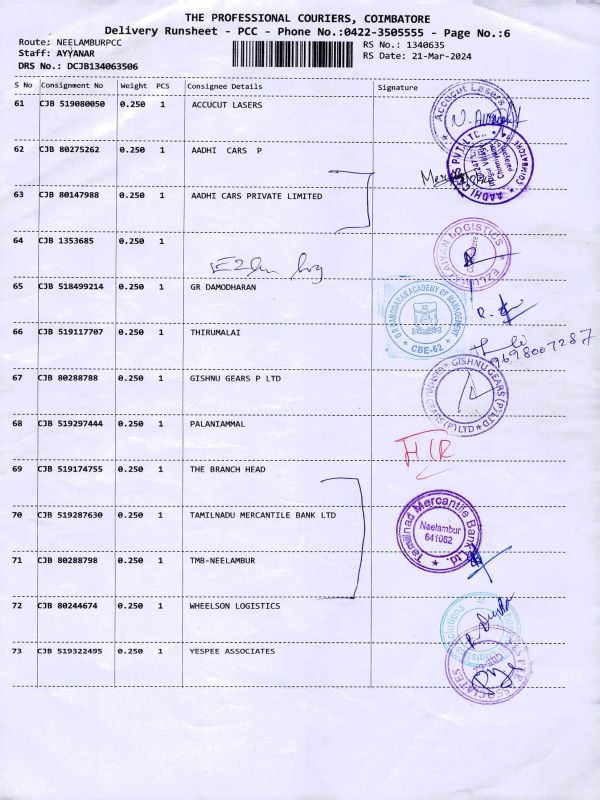 THE PROFESSIONAL COURIERS, COIMBATORE
Delivery Runsheet - PCC - Phone No.:0422-3505555 - Page No.:6
Route: NEELAMBURPCC
RS No.: 1340635
Staff: AYYANAR
RS Date: 21-Mar-2024
DRS No.: DCJB134063506
S No Consignment No Weight PCS Consignee Details Signature
61 CJB 519080050 0.250 1 ACCUCUT LASERS
Accucut Lasers
62 CJB 80275262 0.250 1 AADHI CARS P
AADHI CARS PVT LTD.,
COIMBATORE
63 CJB 80147988 0.250 1 AADHI CARS PRIVATE LIMITED
64 CJB 1353685 0.250 1
LOGISTICS
65 CJB 518499214 0.250 1 GR DAMODHARAN
G R DAMODARAN ACADEMY OF MANAGEMENT
CBE-62
66 CJB 519117707 0.250 1 THIRUMALAI
9698007287
67 CJB 80288788 0.250 1 GISHNU GEARS P LTD
GISHNU GEARS (P) LTD
68 CJB 519297444 0.250 1 PALANIAMMAL
69 CJB 519174755 0.250 1 THE BRANCH HEAD
70 CJB 519287630 0.250 1 TAMILNADU MERCANTILE BANK LTD
Tamilnad Mercantile Bank Ltd.
Neelambur
641062
71 CJB 80288798 0.250 1 TMB-NEELAMBUR
72 CJB 80244674 0.250 1 WHEELSON LOGISTICS
73 CJB 519322495 0.250 1 YESPEE ASSOCIATES